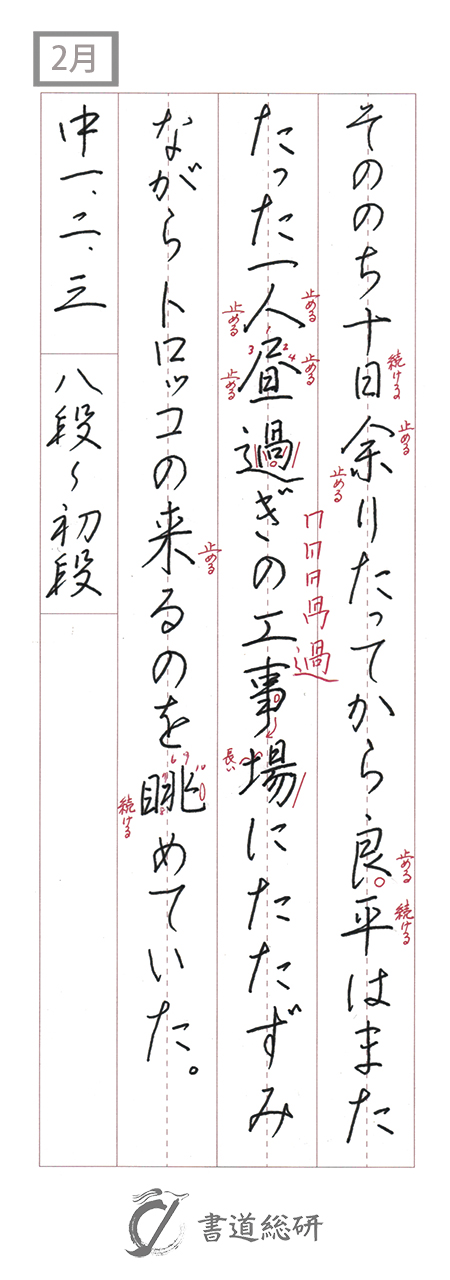 2月
そののち十日余りたってから良平はまた
たった一人昼過ぎの工事場にたたずみ
ながらトロッコの来るのを眺めていた。
中一、二、三
八段〜初段
続ける
止める
止める
止める
続ける
止める
止める
1
2
3
4
止める
止める
過
長い
止める
6
9
10
続ける
書道総研